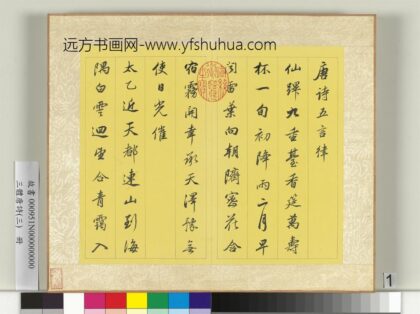 远方书画网-www.yfshuhua.com
唐詩五言律
仙蹕九重臺香筵萬壽
杯一旬初降雨二月早
聞雷葉向朝隮密花合
宿霧開幸承天澤豫無
使日光催
太乙近天都連山到海
隅白雲迴望合青靄入
故書 000951N000000000
三體唐詩(三) 冊
1